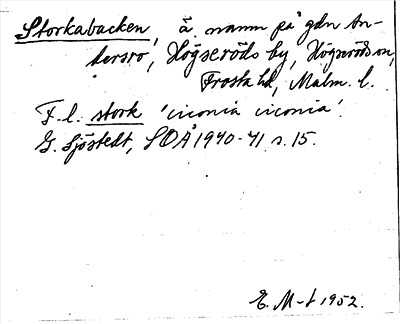 Storkabacken, ä. namn på gdn An-
dersro, Högseröds by, Högseröds sn,
Frosta hd, Malm. l.
F. l. stork 'ciconia ciconia'.
G. Sjöstedt, SOÅ 1940-41 s. 15.
E. M-t 1952.